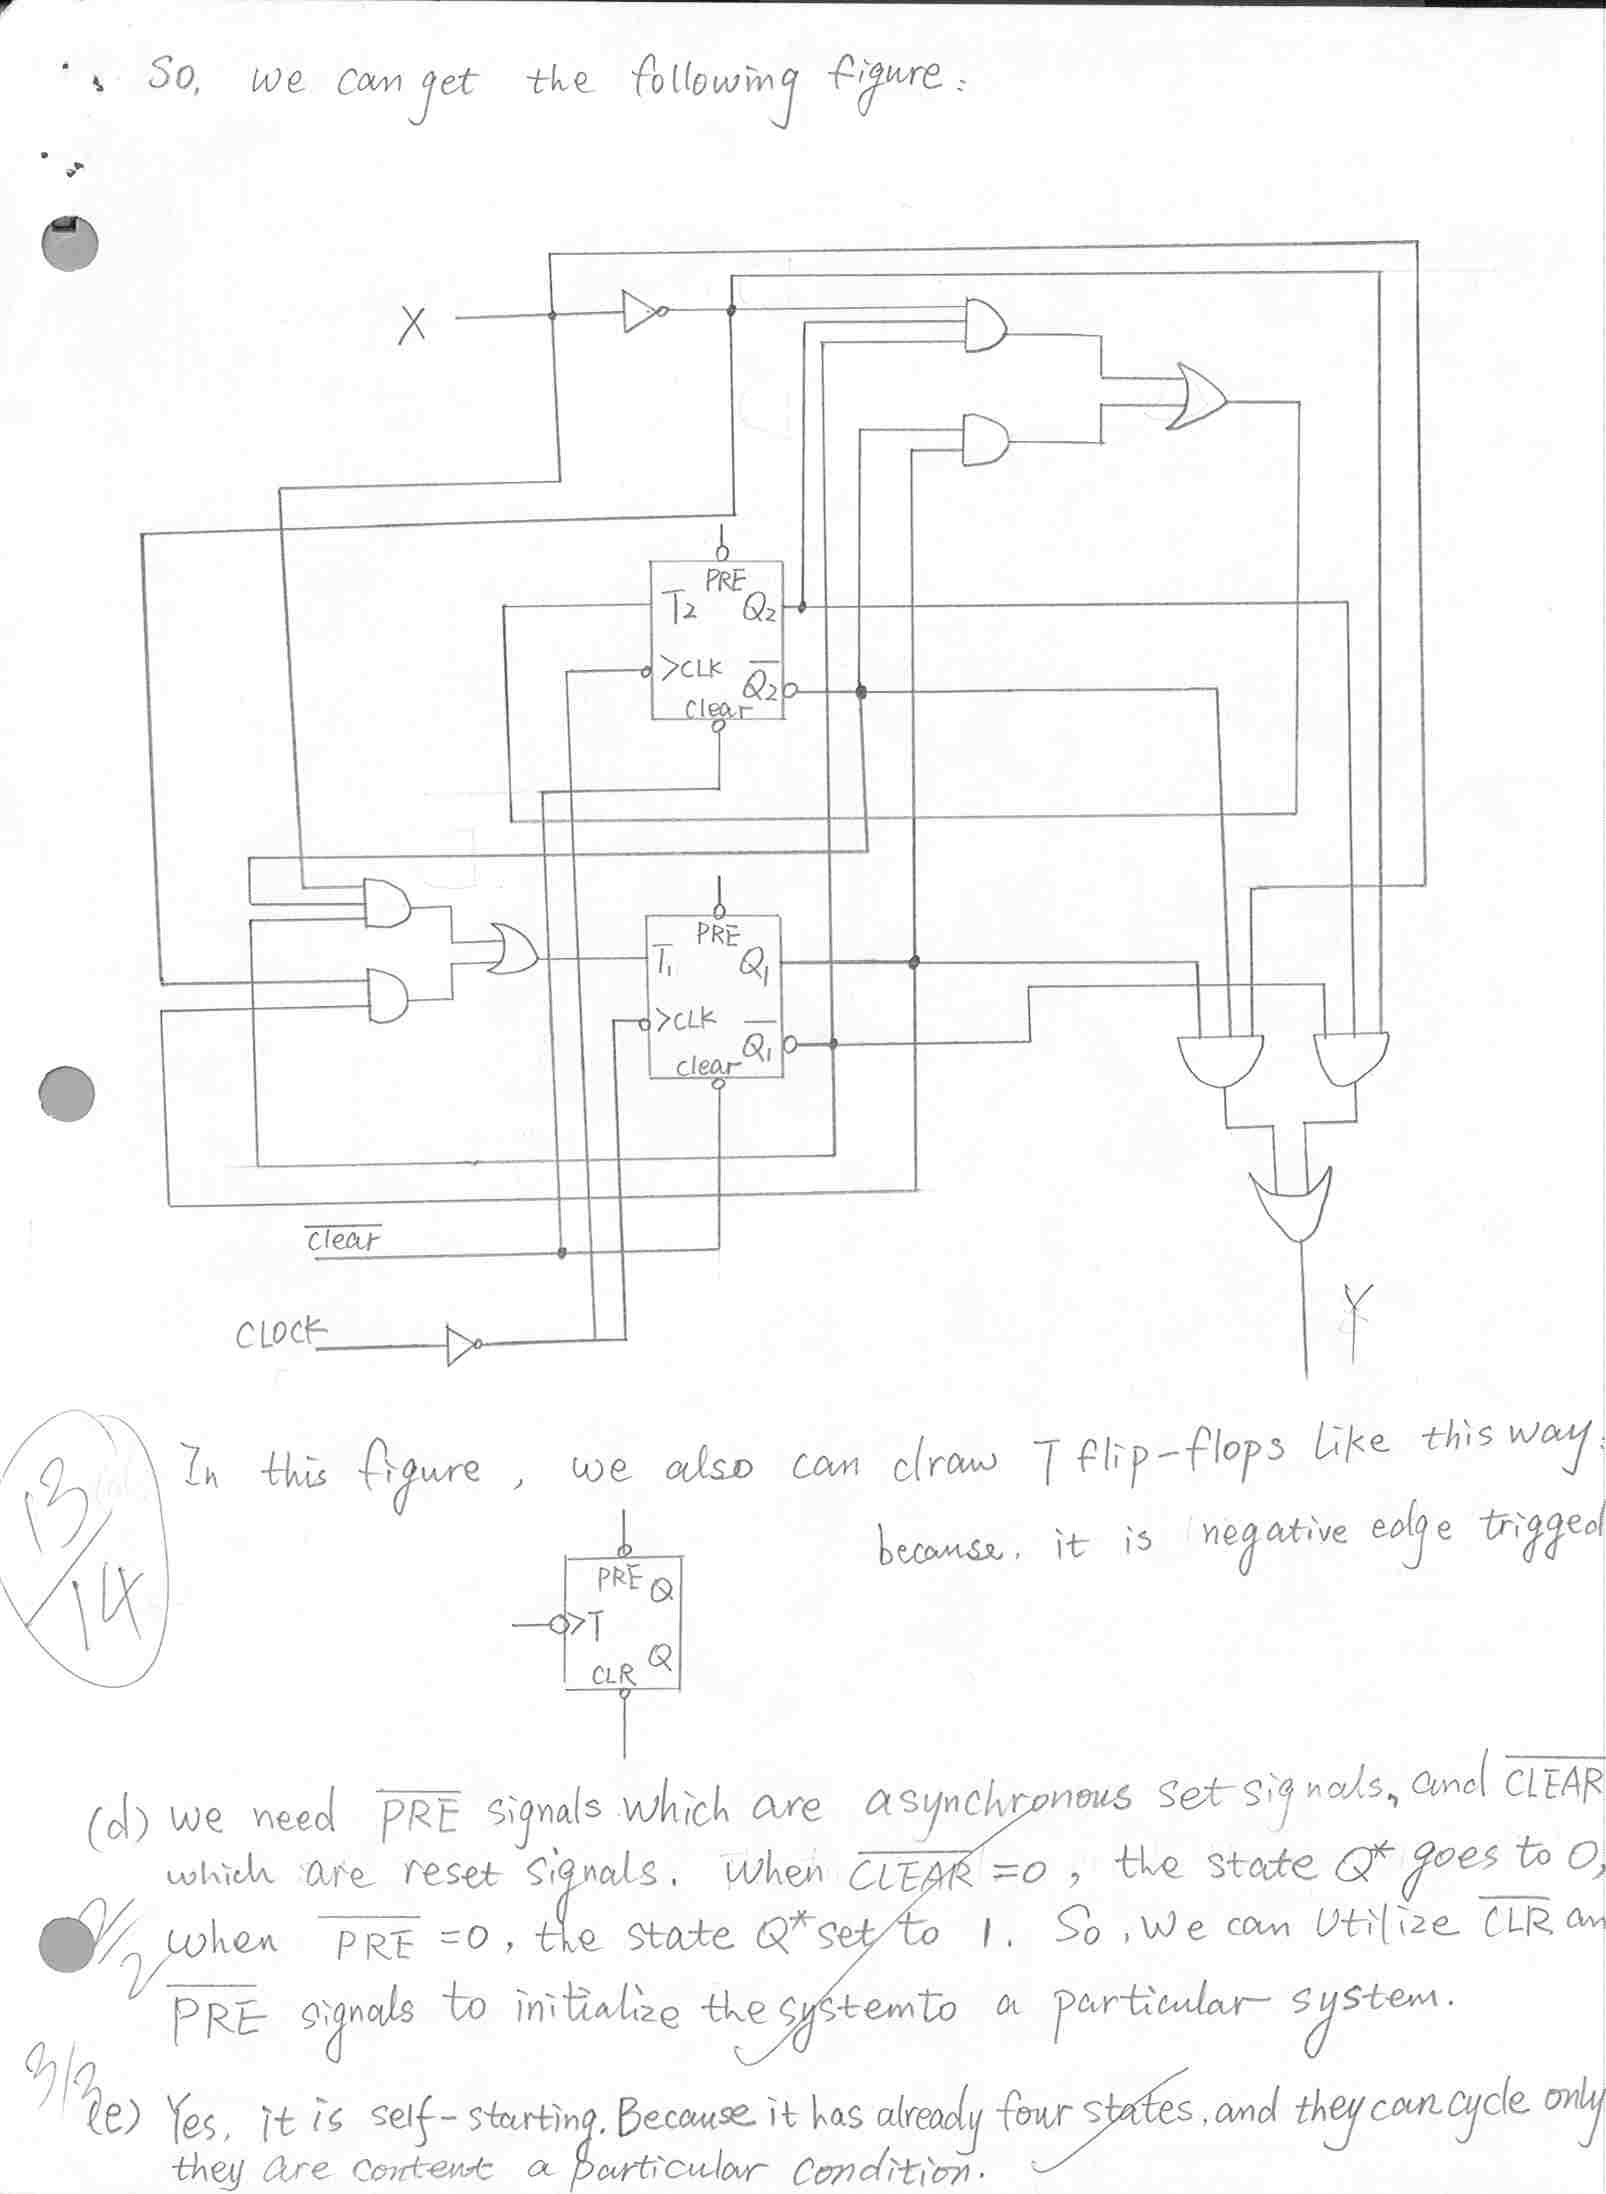 So, we can get the following figure:
X
PRE
T2 Q2
>CLK Q̅2̅
clear
PRE
T1 Q1
>CLK Q̅1̅
clear
c̅l̅e̅a̅r̅
CLOCK
Y
13/14
In this figure, we also can draw T flip-flops like this way:
because. it is negative edge trigged
PRE Q
>T
CLR Q
(d) we need P̅R̅E̅ signals which are asynchronous set signals, and C̅L̅E̅A̅R̅
which are reset signals. When C̅L̅E̅A̅R̅ =0, the state Q* goes to 0,
2/2
when P̅R̅E̅ =0, the state Q* set to 1. So, We can Utilize C̅L̅R̅ an
P̅R̅E̅ signals to initialize the system to a particular system.
3/3
(e) Yes, it is self-starting. Because it has already four states, and they can cycle only
they are content a particular condition.